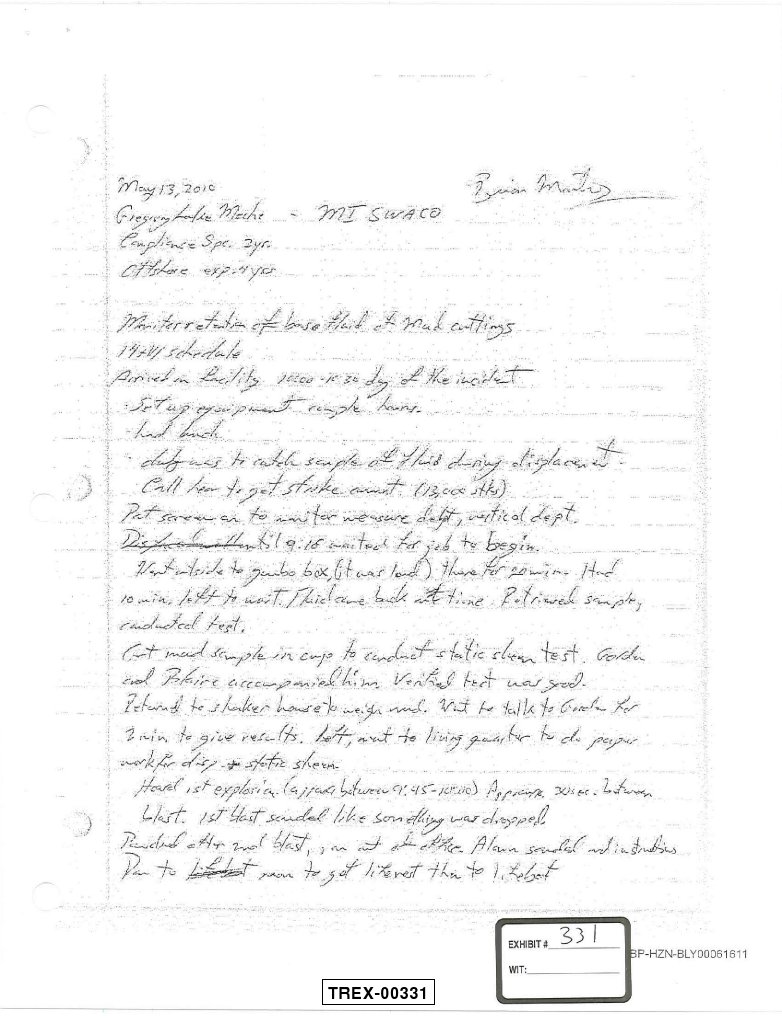 May 13, 2010
Brian
Gregory Luke Meche - MI SWACO
Compliance Spc. 2yr.
Offshore exp. 4 yrs
Monitor retention of base fluid at mud cuttings
14+21 schedule
Arrived on facility 10:00-10:30 day of the incident
- Set up equipment couple hours.
- had lunch
- duty was to catch sample of fluid during displacement -
Call her to get stroke count (13,000 stks)
Put screen on to monitor measure dept, vertical dept.
until 9:15 waited for job to begin.
Went outside to gumbo box, (it was loud) there for 20 min. Had
10 min. left to wait. Fluid came back at time. Retrieved sample,
conducted test.
Put mud sample in cup to conduct static sheen test. Gordon
and accompanied him. Verified test was good.
Returned to shaker house to weigh mud. Went to talk to Gordon for
2 min to give results. Left, went to living quarter to do paper
work for disp + static sheen.
Heard 1st explosion (approx between 9:45-10:00) Approx 30 sec. between
blast. 1st blast sounded like something was dropped.
after 2nd blast, ran out of office. Alarm sounded and instructions
Ran to room to get lifevest then to lifeboat
EXHIBIT # 331
WIT:
BP-HZN-BLY00061611
TREX-00331